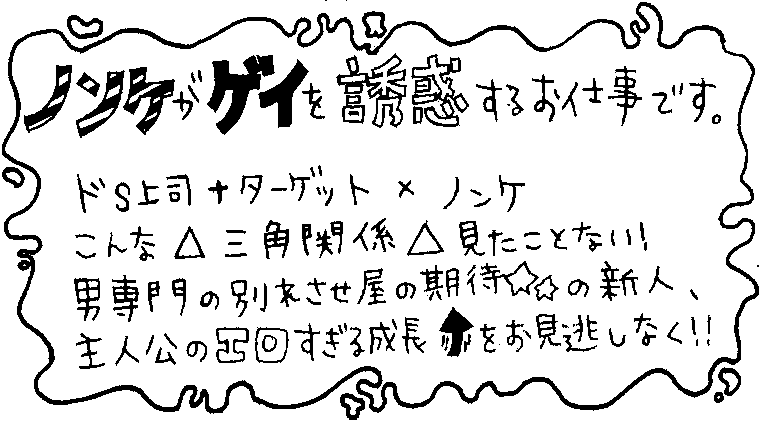 ノンケがゲイを誘惑するお仕事です。
ドS上司+ターゲット×ノンケ
こんな△三角関係△見たことない!
男専門の別れさせ屋の期待☆☆の新人、
主人公の凸回すぎる成長⬆をお見逃しなく!!